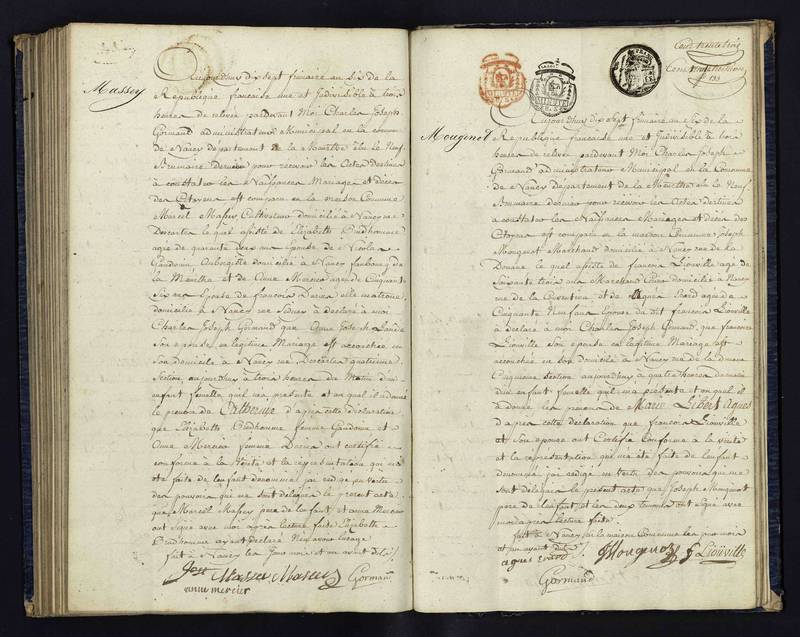 Massey
Aujourdhuy dix sept frimaire an six de la
République française une et indivisible à trois
heures de relevée pardevant Moi Charles Joseph
Gormand administrateur Municipal en la commune
de Nancy département de la Meurthe élu le Neuf
Brumaire dernier pour recevoir les Actes destinés
à constater les Naissances Mariages et décès
des Citoyens est comparu en la maison Commune
Marcel Massey Cultivateur domicilié à Nancy rue
Descartes lequel assisté de Elizabeth Prudhomme
agée de quarante deux ans épouse de Nicolas
Gaudouin Aubergiste domicilié à Nancy faubourg de
la Meurthe et de Anne Mercier agée de Cinquante
six ans épouse de françois elle matrone
domiciliée à Nancy a déclaré à moi
Charles Joseph Gormand que Anne Joseph
Son epouse en légitime Mariage est accouchée en
Son domicile à Nancy rue Descartes quatrieme
Section aujourdhuy à trois heures du Matin d'un
enfant femelle qu'il m'a présenté et auquel il a donné
le prenom de Catherine d'après cette déclaration
que Elizabeth Prudhomme femme Gaudouin et
Anne Mercier femme ont certifié
conforme à la Vérité et la représentation qui m'a
été faite de l'enfant dénommé j'ai rédigé en vertu
des pouvoirs qui me sont délégués le présent acte
que Marcel Massey pere de l'enfant et anne Mercier
ont signé avec moi après lecture faite Elizabeth
Prudhomme ayant déclaré N'en avoir l'usage
fait à Nancy les jour mois et an avant dits
Massey
anne mercier Gormand
Mougenot
Aujourdhuy dix sept frimaire an six de la
République française une et indivisible à trois
heures de relevée pardevant Moi Charles Joseph
Gormand administrateur Municipal en la Commune
de Nancy département de la Meurthe élu le Neuf
Brumaire dernier pour recevoir les Actes destinés
à constater les Naissances Mariages et décès des
Citoyens est comparu en la maison Commune Joseph
Mougenot Marchand domicilié à Nancy rue de la
Douane lequel assisté de françois Liouville agé de
soixante trois ans Marchand domicilié à Nancy
rue de la et de Agnes agée de
Cinquante Neuf ans épouse du dit françois Liouville
à déclaré à moi Charles Joseph Gormand que françoise
Liouville son épouse en légitime Mariage est
accouchée en son domicile à Nancy rue de la Douane
Cinquieme section aujourdhuy à quatre heures du matin
d'un enfant femelle qu'il m'a présenté et auquel il
à donné les prenoms de Marie Libert Agnes
d'apres cette déclaration que francois Liouville
et Son épouse ont Certifié Conforme à la vérité
et la représentation qui m'a été faite de l'enfant
dénommé j'ai redigé en vertu des pouvoirs qui me
sont délégués le présent acte que Joseph Mougenot
pere de l'enfant et les deux temoins ont signé avec
moi après lecture faite.
fait à Nancy en la maison Commune les jour mois
et an avant dits
agnes JMougenot f Liouville
Gormand